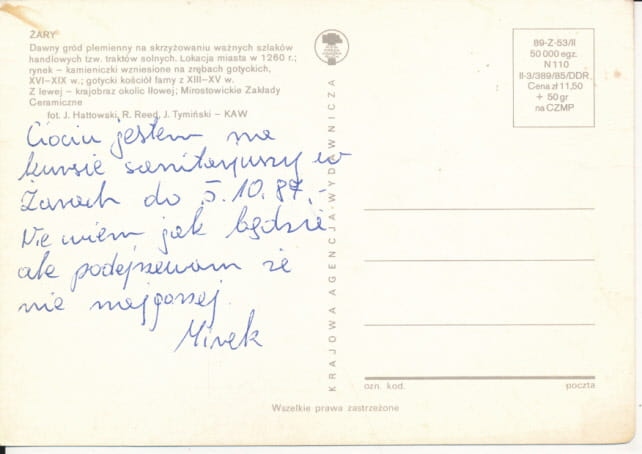 ŻARY
Dawny gród plemienny na skrzyżowaniu ważnych szlaków
handlowych tzw. traktów solnych. Lokacja miasta w 1260 r.;
rynek – kamieniczki wzniesione na zrębach gotyckich,
XVI–XIX w.; gotycki kościół farny z XIII–XV w.
Z lewej – krajobraz okolic Iłowej; Mirostowickie Zakłady
Ceramiczne
fot. J. Hattowski, R. Reed, J. Tymiński – KAW
Ciociu jestem na
kursie sanitaryuszy w
Żarach do 5.10.87,-
Nie wiem jak będzie
ale podejrzewam że
nie najgorzej.
Mirek
KRAJOWA AGENCJA WYDAWNICZA
89-Z-53/II
50 000 egz.
N 110
II-3/389/85/DDR
Cena zł 11,50
+ 50 gr
na CZMP
ozn. kod. poczta
Wszelkie prawa zastrzeżone